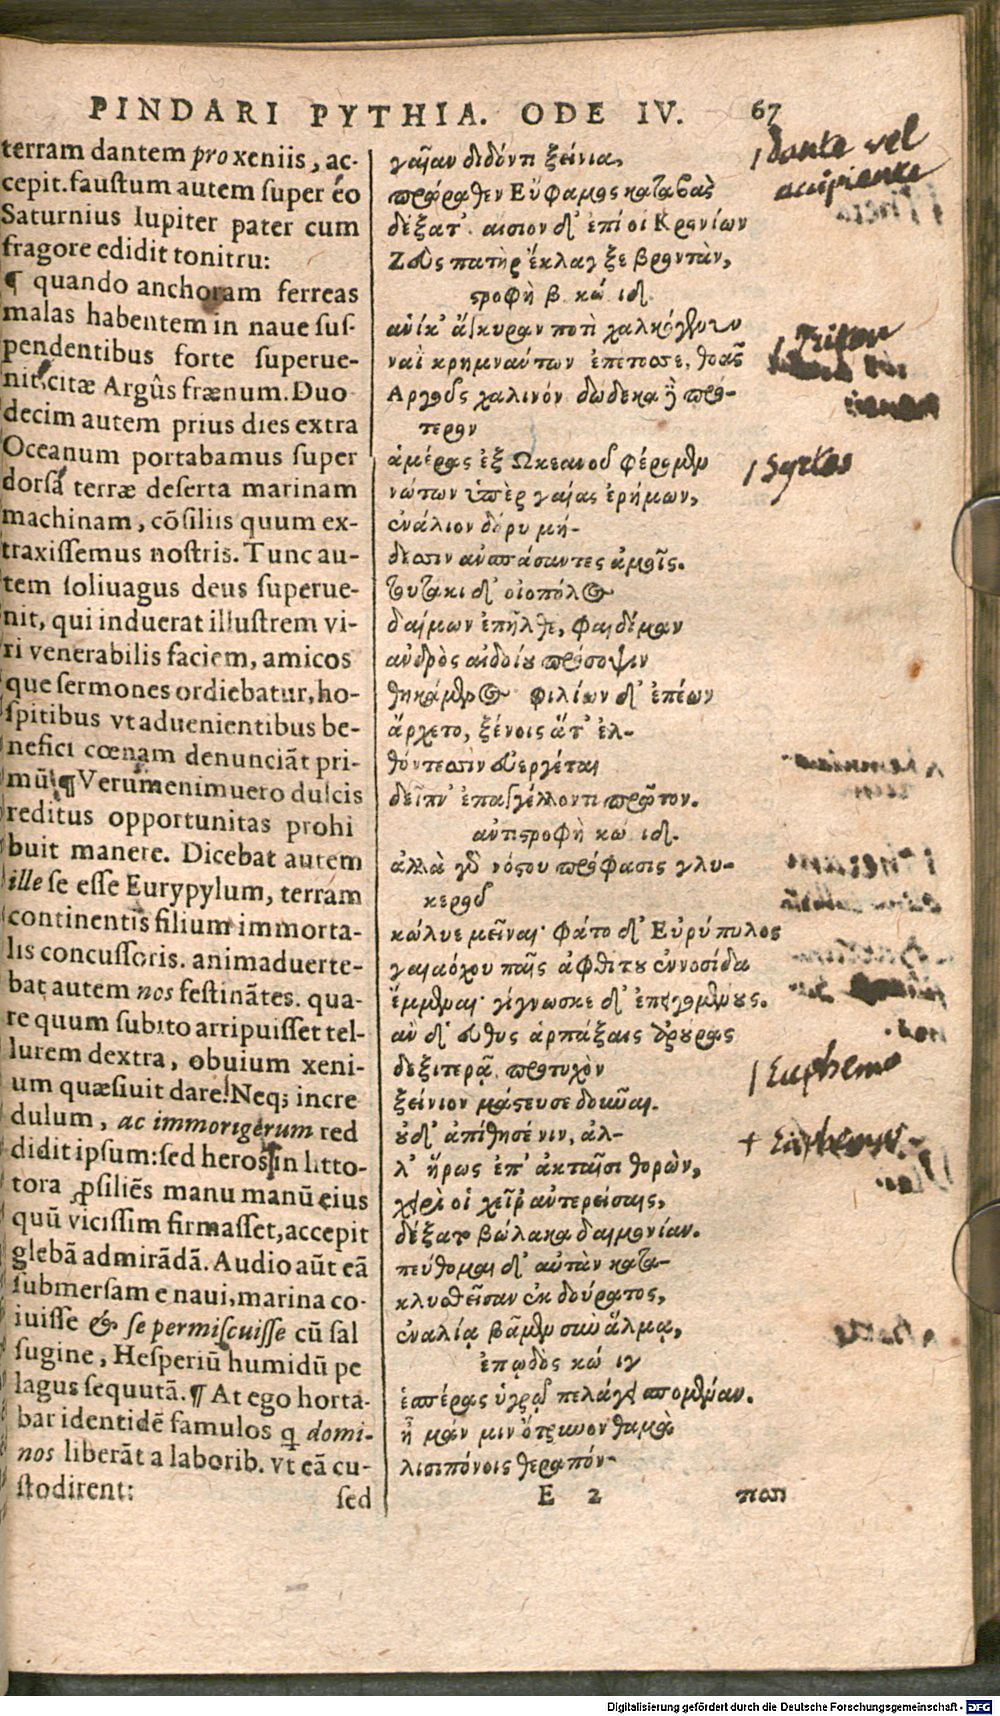 PINDARI PYTHIA. ODE IV. 67
terram dantem pro xeniis, ac-
cepit. faustum autem super eo
Saturnius Iupiter pater cum
fragore edidit tonitru:
¶ quando anchoram ferreas
malas habentem in naue sus-
pendentibus forte superue-
nit, citæ Argûs frænum. Duo
decim autem prius dies extra
Oceanum portabamus super
dorsa terræ deserta marinam
machinam, cõsiliis quum ex-
traxissemus nostris. Tunc au-
tem soliuagus deus superue-
nit, qui induerat illustrem vi-
ri venerabilis faciem, amicos
que sermones ordiebatur, ho-
spitibus vt aduenientibus be-
nefici cœnam denunciãt pri-
mũ. ¶ Verum enimuero dulcis
reditus opportunitas prohi
buit manere. Dicebat autem
ille se esse Eurypylum, terram
continentis filium immorta-
lis concussoris. animaduerte-
bat autem nos festinãtes. qua-
re quum subito arripuisset tel-
lurem dextra, obuium xeni-
um quæsiuit dare. Neq; incre
dulum, ac immorigerum red
didit ipsum: sed heros in litto-
tora ꝓsiliẽs manu manũ eius
quũ vicissim firmasset, accepit
glebã admirãdã. Audio aũt eã
submersam e naui, marina co-
iuisse & se permiscuisse cũ sal
sugine, Hesperiũ humidũ pe
lagus sequutã. ¶ At ego horta-
bar identidẽ famulos q̃ domi-
nos liberãt a laborib. vt eã cu-
stodirent: sed
γαῖαν διδόντι ξείνια,
πρώραθεν Εὔφαμος καταβὰς
δέξατ'. αἴσιον δ' ἐπί οἱ Κρονίων
Ζεὺς πατὴρ ἔκλαγξε βροντὰν,
στροφὴ β κώ. ιδ.
ἁνίκ' ἄγκυραν ποτὶ χαλκόγενυν
ναῒ κρημνάντων ἐπέτοσσε, θοᾶς
Αργοῦς χαλινόν. δώδεκα ἢ πρό-
τερον
ἁμέρας ἐξ Ωκεανοῦ φέρομεν
νώτων ὑπὲρ γαίας ἐρήμων,
ἐνάλιον δόρυ μή-
δεσιν ἀνσπάσαντες ἀμοῖς.
τουτάκι δ' οἰοπόλος
δαίμων ἐπῆλθε, φαιδίμαν
ἀνδρὸς αἰδοίου πρόσοψιν
θηκάμενος φιλίων δ' ἐπέων
ἄρχετο, ξένοις ἅτ' ἐλ-
θόντεσσιν εὐεργέται
δεῖπν' ἐπαγγέλλοντι πρῶτον.
ἀντιστροφὴ κώ. ιδ.
ἀλλὰ γὰρ νόστου πρόφασις γλυ-
κεροῦ
κώλυε μεῖναι· φάτο δ' Εὐρύπυλος
γαιαόχου παῖς ἀφθίτου ἐννοσίδα
ἔμμεναι· γίγνωσκε δ' ἐπειγομένους.
ἂν δ' εὐθὺς ἁρπάξαις ἀρούρας
δεξιτερᾷ. προτυχὸν
ξείνιον μάστευσε δοῦναι.
οὐδ' ἀπίθησέ νιν, ἀλ-
λ' ἥρως ἐπ' ἀκταῖσι θορὼν,
χειρί οἱ χεῖρ' ἀντερείσαις,
δέξατο βώλακα δαιμονίαν.
πεύθομαι δ' αὐτὰν κατα-
κλυσθεῖσαν ἐκ δούρατος,
ἐναλίᾳ βᾶμεν σὺν ἅλμᾳ,
ἐπῳδὸς κώ ιγ
ἑσπέρας ὑγρῷ πελάγει σπομέναν.
ἦ μάν μιν ὄτρυνον θαμὰ
λυσιπόνοις θεραπόν-
E 2 παν
/ dante vel
accipiente
/ Triton
/ Syrtes
/ Euphemo
+ Euphemus.
Digitalisierung gefördert durch die Deutsche Forschungsgemeinschaft - DFG